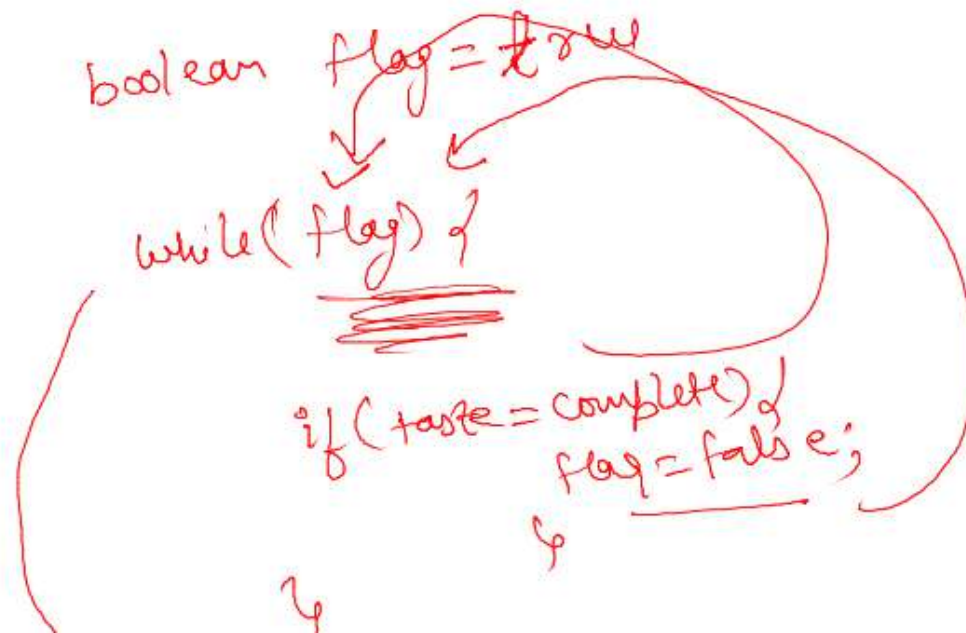 boolean flag = true
while(flag) {
if(taske = complete) {
flag = false;
}
}